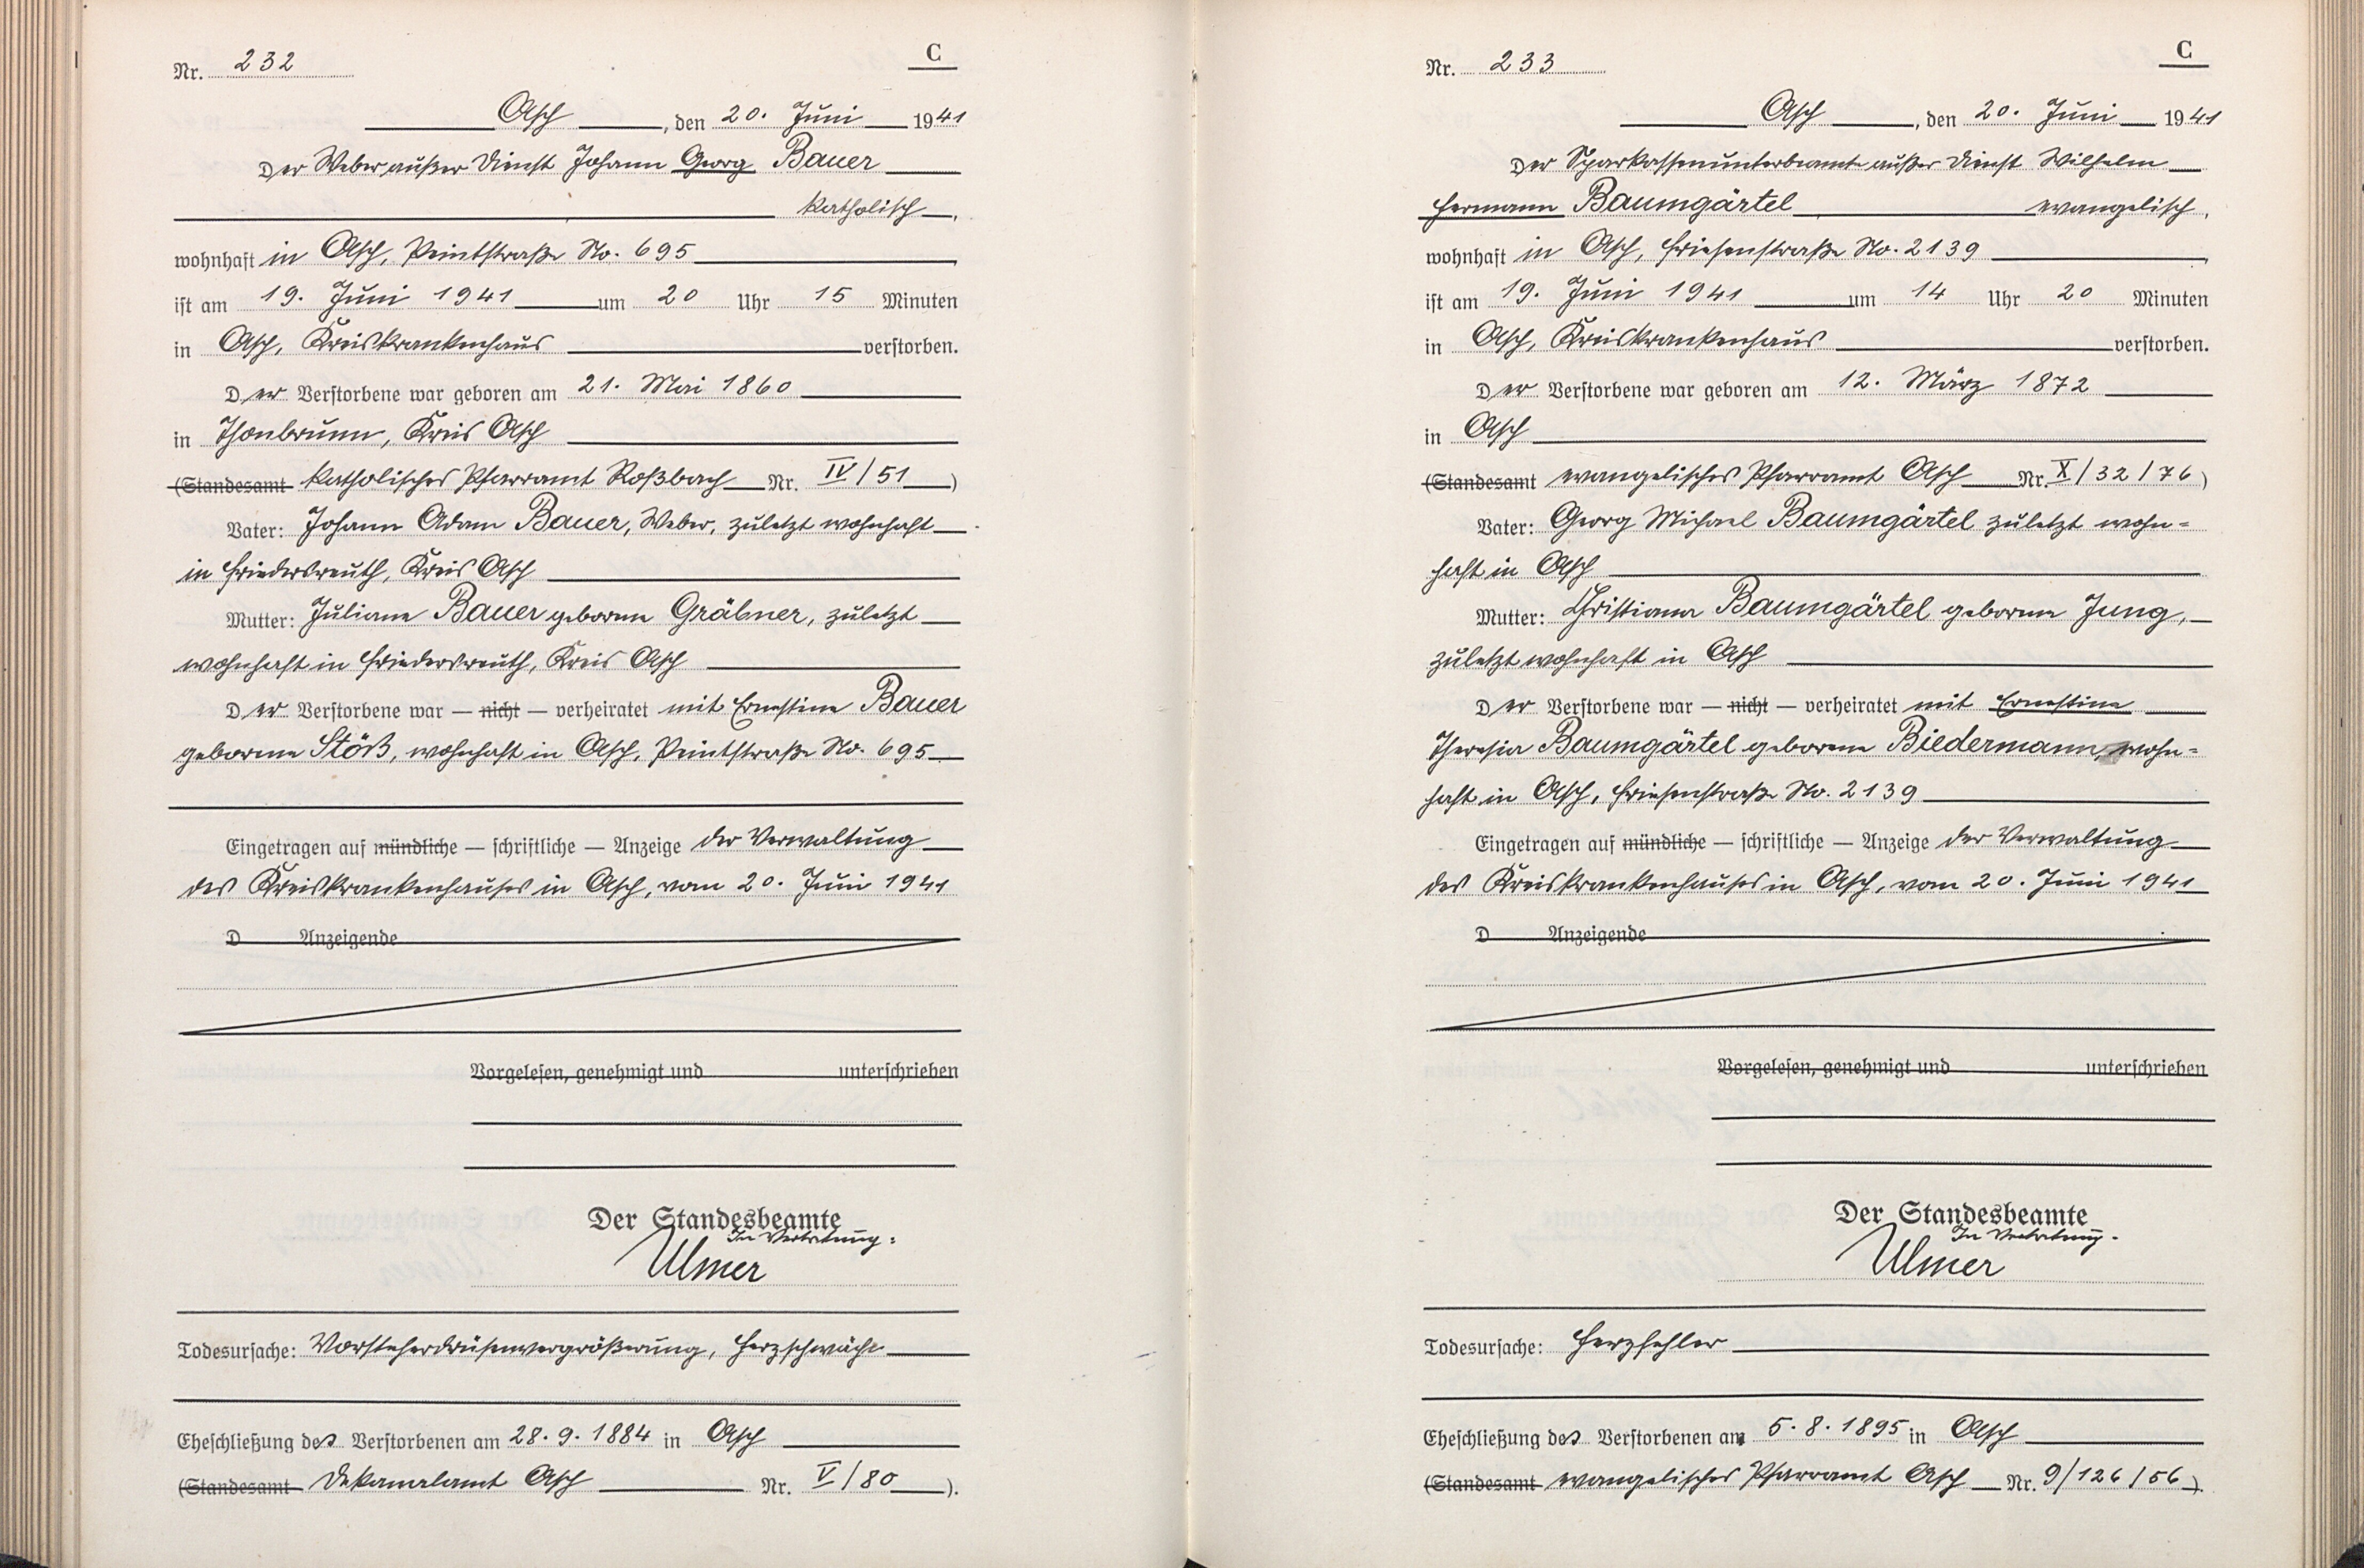 Nr. 232
C
Asch, den 20. Juni 1941
Der Weber außer Dienst Johann Georg Bauer
katholisch,
wohnhaft in Asch, Peintstraße No. 695
ist am 19. Juni 1941 um 20 Uhr 15 Minuten
in Asch, Kreiskrankenhaus verstorben.
Der Verstorbene war geboren am 21. Mai 1860
in Thonbrunn, Kreis Asch
(Standesamt katholisches Pfarramt Roßbach Nr. IV/51)
Vater: Johann Adam Bauer, Weber, zuletzt wohnhaft
in Friedersreuth, Kreis Asch
Mutter: Juliane Bauer geborene Gräbner, zuletzt
wohnhaft in Friedersreuth, Kreis Asch
Der Verstorbene war — nicht — verheiratet mit Ernestine Bauer
geborene Stöß, wohnhaft in Asch, Peintstraße No. 695
Eingetragen auf mündliche — schriftliche — Anzeige der Verwaltung
des Kreiskrankenhauses in Asch, vom 20. Juni 1941
D Anzeigende
Vorgelesen, genehmigt und unterschrieben
Der Standesbeamte
In Vertretung:
Ulmer
Todesursache: Vorsteherdrüsenvergrößerung, Herzschwäche
Eheschließung des Verstorbenen am 28.9.1884 in Asch
(Standesamt Dekanalamt Asch Nr. V/80).
Nr. 233
C
Asch, den 20. Juni 1941
Der Sparkassenunterbeamte außer Dienst Wilhelm
Hermann Baumgärtel evangelisch,
wohnhaft in Asch, Friesenstraße No. 2139
ist am 19. Juni 1941 um 14 Uhr 20 Minuten
in Asch, Kreiskrankenhaus verstorben.
Der Verstorbene war geboren am 12. März 1872
in Asch
(Standesamt evangelisches Pfarramt Asch Nr. X/32/76)
Vater: Georg Michael Baumgärtel zuletzt wohn=
haft in Asch
Mutter: Christiana Baumgärtel geborene Jung,
zuletzt wohnhaft in Asch
Der Verstorbene war — nicht — verheiratet mit Ernestine
Theresia Baumgärtel geborene Biedermann, wohn=
haft in Asch, Friesenstraße No. 2139
Eingetragen auf mündliche — schriftliche — Anzeige der Verwaltung
des Kreiskrankenhauses in Asch, vom 20. Juni 1941
D Anzeigende
Vorgelesen, genehmigt und unterschrieben
Der Standesbeamte
In Vertretung.
Ulmer
Todesursache: Herzfehler
Eheschließung des Verstorbenen am 5.8.1895 in Asch
(Standesamt evangelisches Pfarramt Asch Nr. 9/126/56).